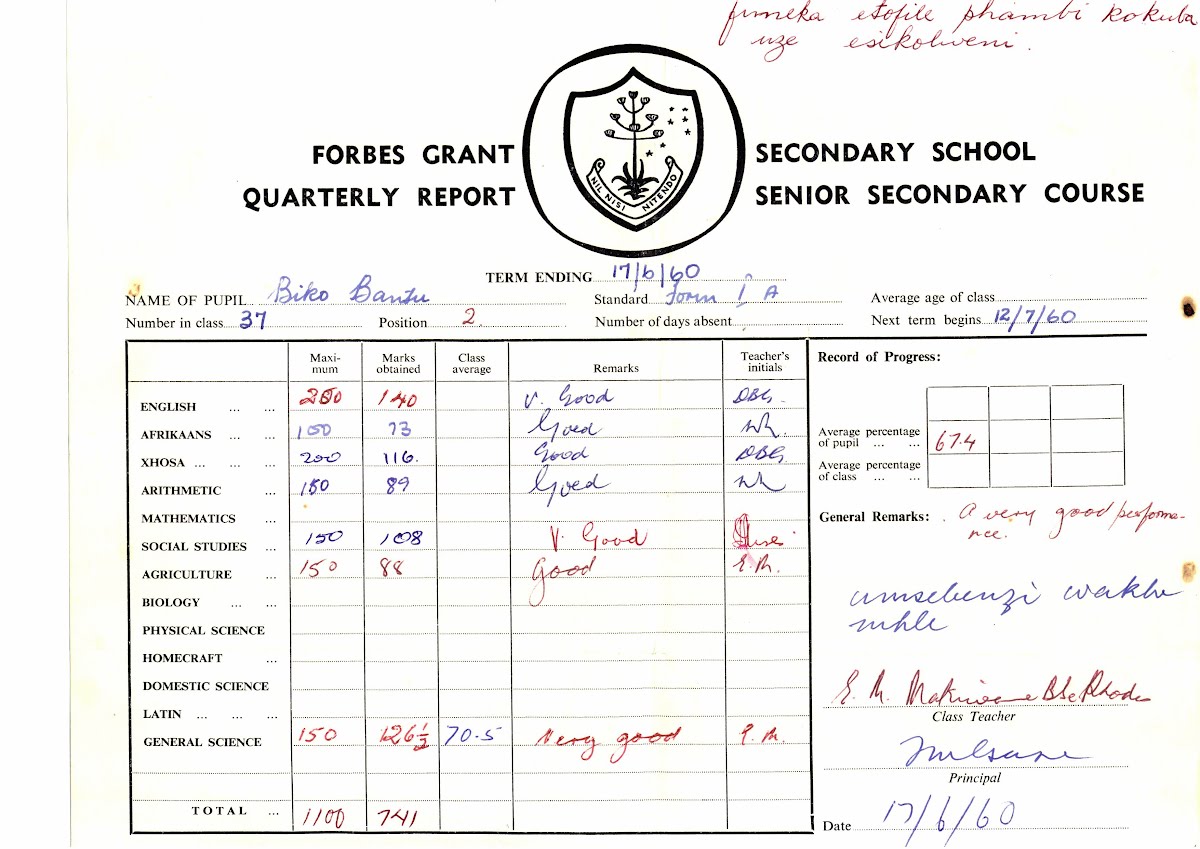 fumeka etofile phambi kokuba
uze esikolweni.
FORBES GRANT SECONDARY SCHOOL
QUARTERLY REPORT SENIOR SECONDARY COURSE
NIL NISI NITENDO
TERM ENDING 17/6/60
NAME OF PUPIL Biko Bantu Standard Form I A Average age of class
Number in class 37 Position 2. Number of days absent Next term begins 12/7/60
Maxi-mum Marks obtained Class average Remarks Teacher's initials
ENGLISH ... ... 200 140 V. Good DBG.
AFRIKAANS ... ... 150 73 Goed
XHOSA ... ... 200 116. Good DBG.
ARITHMETIC ... 150 89 Goed
MATHEMATICS ...
SOCIAL STUDIES ... 150 108 V. Good
AGRICULTURE ... 150 88 Good E.M.
BIOLOGY ... ...
PHYSICAL SCIENCE
HOMECRAFT ...
DOMESTIC SCIENCE
LATIN ... ... ...
GENERAL SCIENCE 150 126½ 70.5 Very good E.M.
TOTAL ... 1100 741
Record of Progress:
Average percentage
of pupil ... ... 67.4
Average percentage
of class ... ...
General Remarks: A very good performa-
nce.
umsebenzi wakhe
mhle
E. M. Makiwane BSc Rhodes
Class Teacher
Principal
Date 17/6/60